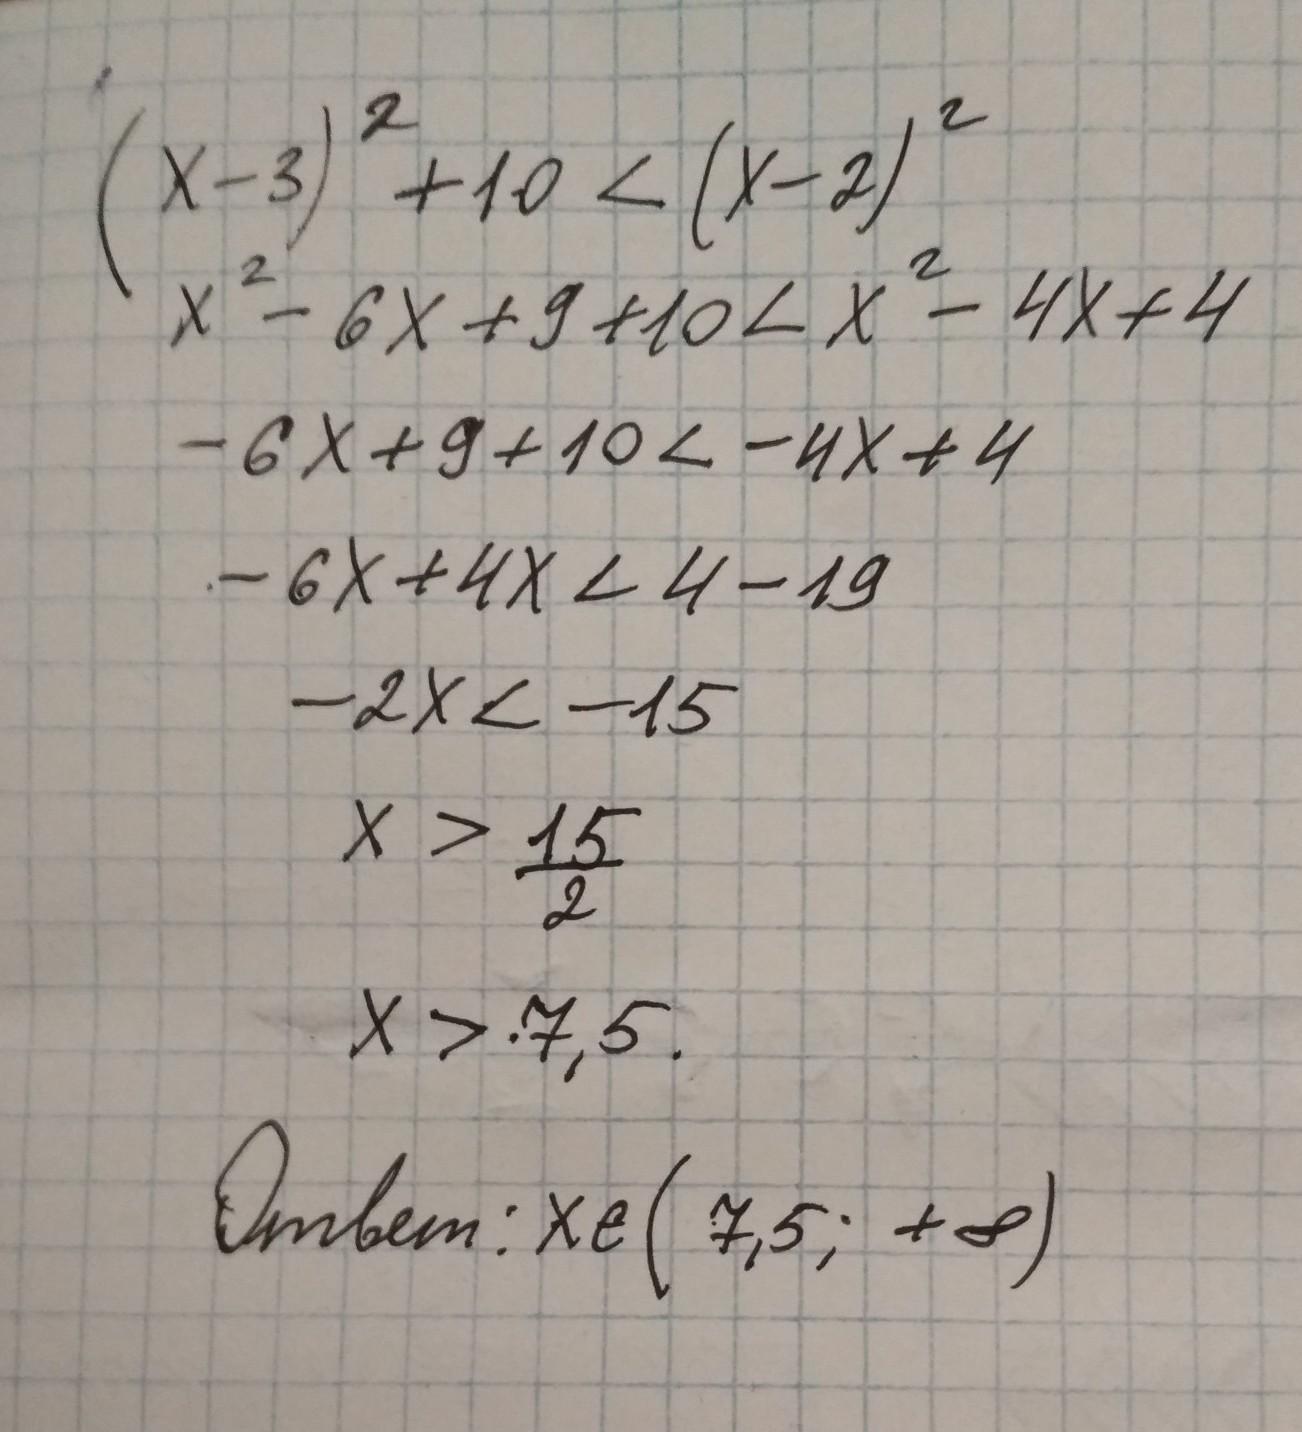 (x-3)² +10 < (x-2)²
x² - 6x + 9 + 10 < x² - 4x + 4
-6x + 9 + 10 < -4x + 4
-6x + 4x < 4 - 19
-2x < -15
x > 15/2
x > 7,5.
Ответ: x∈(7,5; +∞)